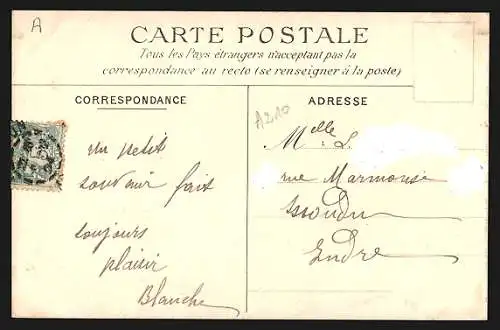 A
CARTE POSTALE
Tous les Pays étrangers n'acceptant pas la
correspondance au recto (se renseigner à la poste)
CORRESPONDANCE
ADRESSE
A210
un petit
souvenir fait
toujours
plaisir
Blanche
Melle L.
rue Marmouse
Issoudun
Indre